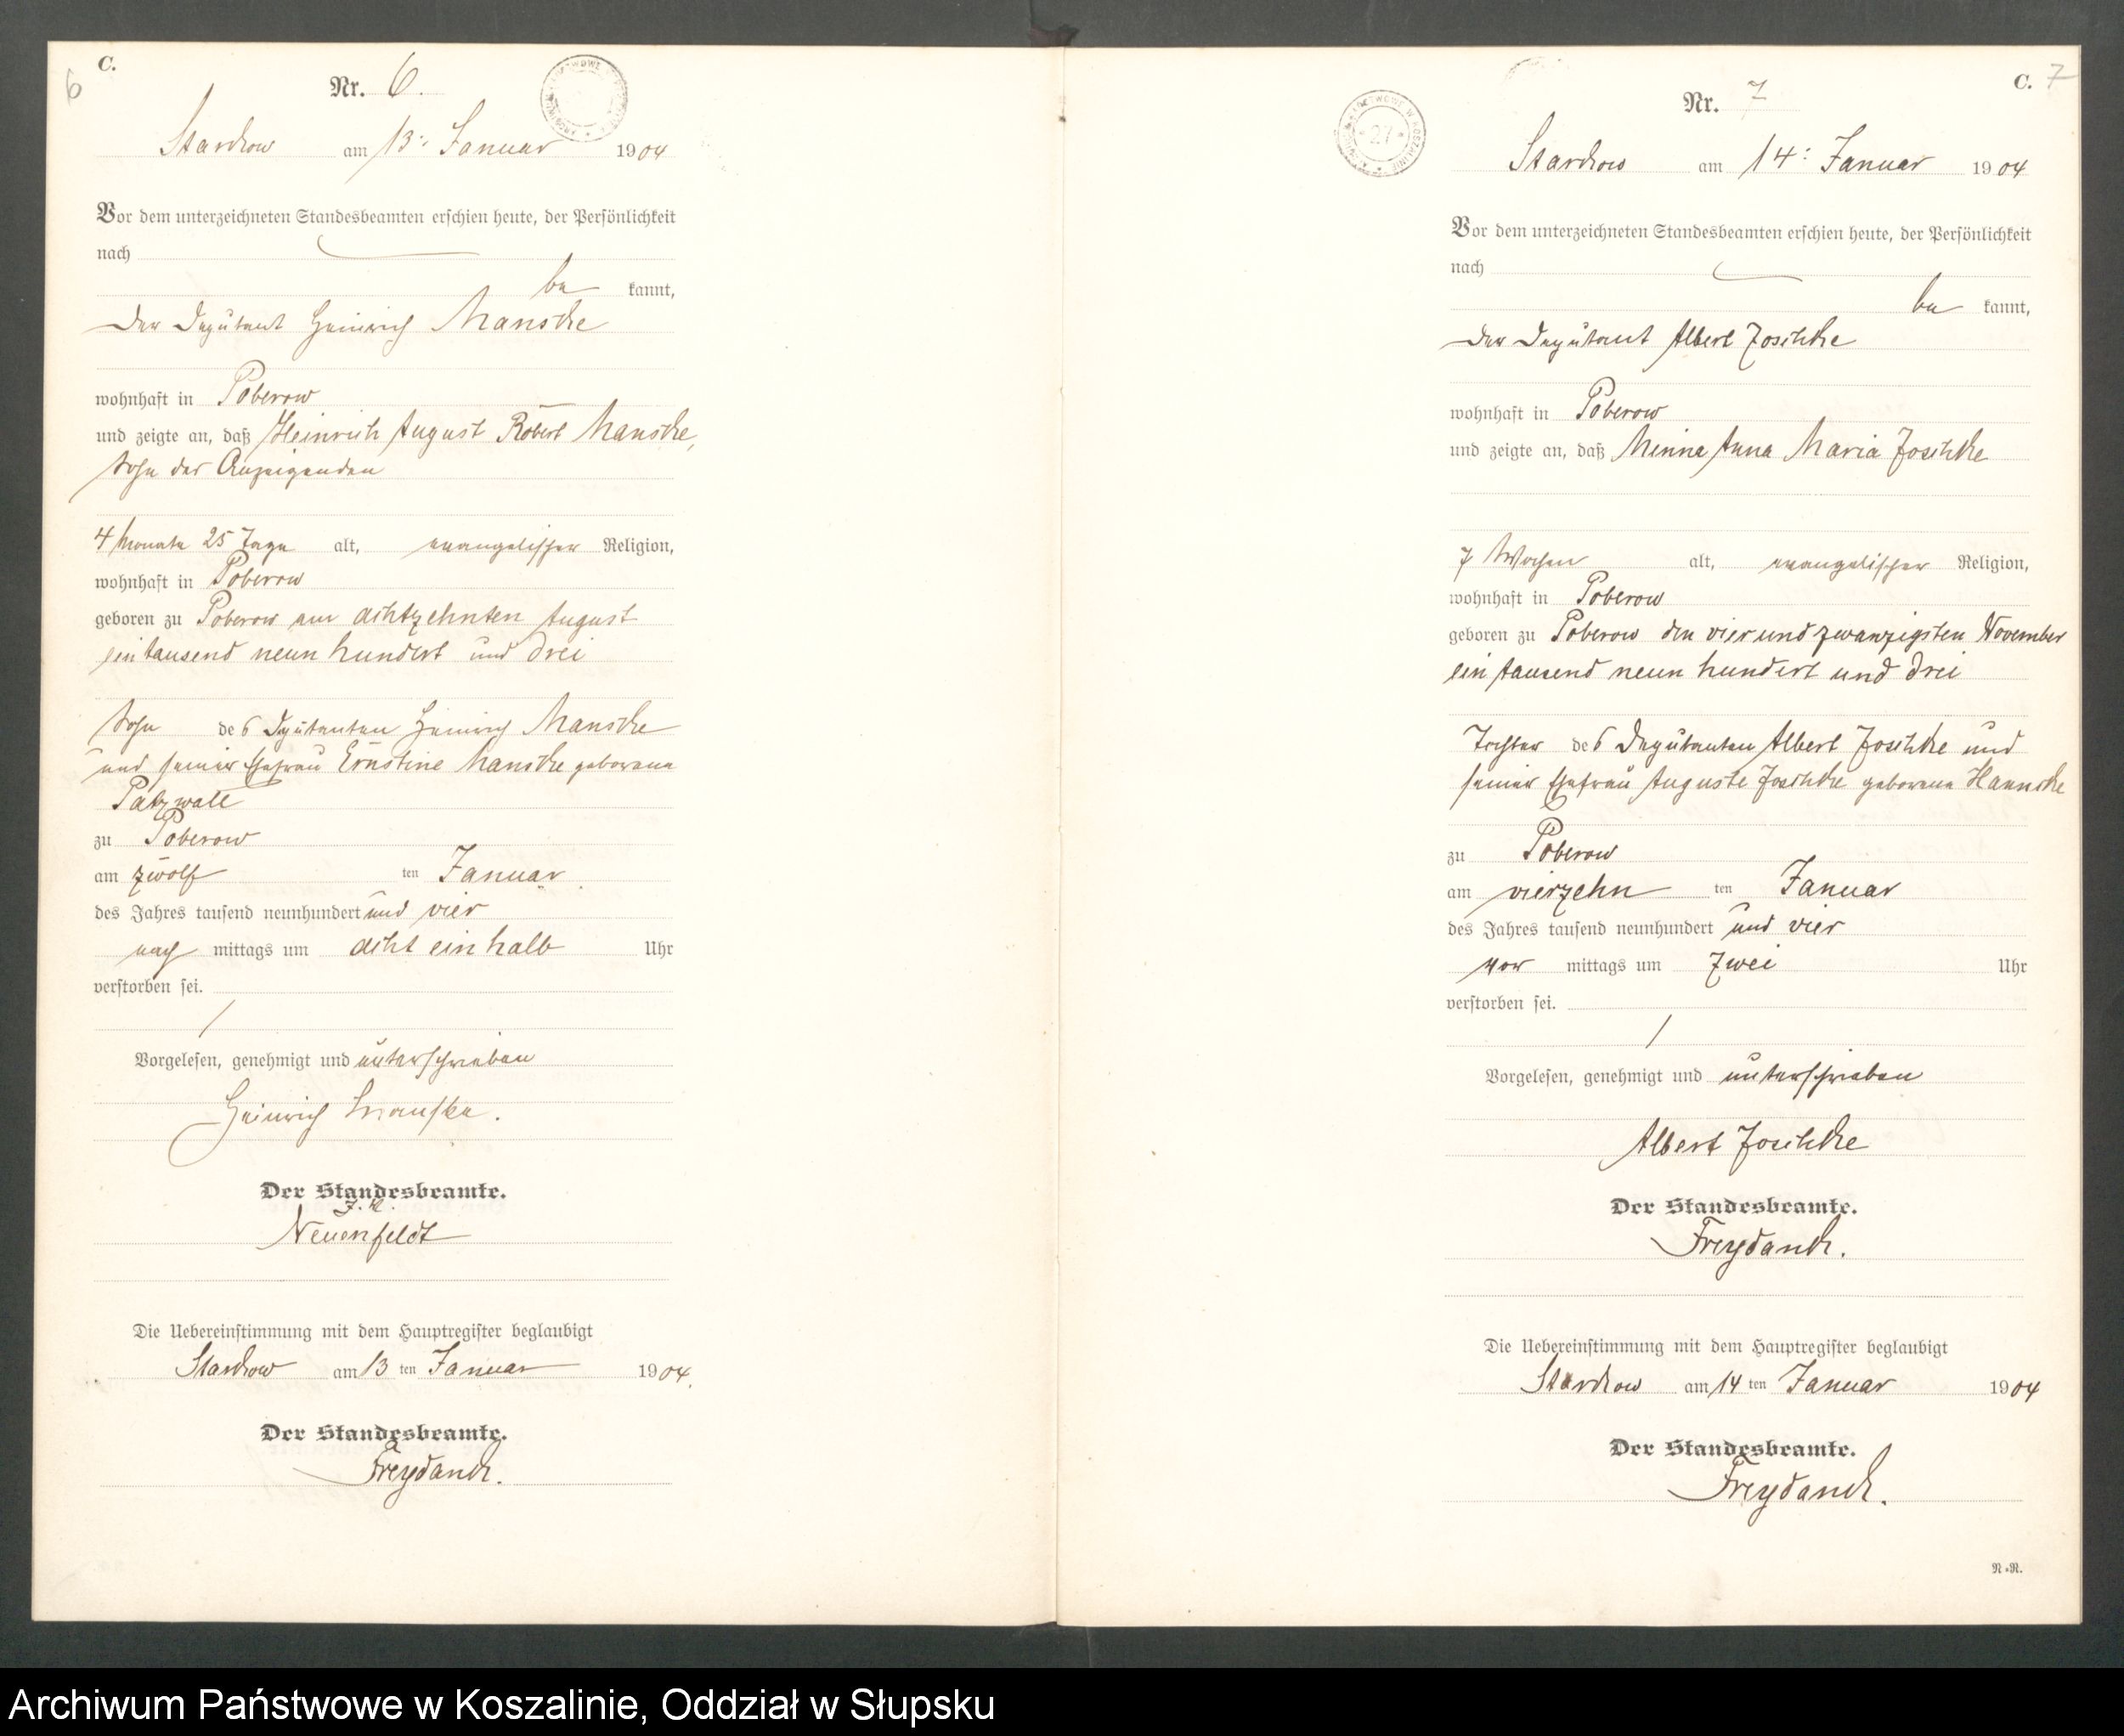 6
C.
Nr. 6.
Starkow am 13. Januar 1904
Vor dem unterzeichneten Standesbeamten erschien heute, der Persönlichkeit
nach
be kannt,
der Deputant Heinrich Manske
wohnhaft in Poberow
und zeigte an, daß Heinrich August Robert Manske,
Sohn des Anzeigenden
4 Monate 25 Tage alt, evangelischer Religion,
wohnhaft in Poberow
geboren zu Poberow am achtzehnten August
eintausend neun hundert und drei
Sohn des Deputanten Heinrich Manske
und seiner Ehefrau Ernstine Manske geborene
Patzwall
zu Poberow
am zwölf ten Januar
des Jahres tausend neunhundert und vier
nach mittags um acht ein halb Uhr
verstorben sei.
Vorgelesen, genehmigt und unterschrieben
Heinrich Manske.
Der Standesbeamte.
J. V.
Neuenfeldt
Die Uebereinstimmung mit dem Hauptregister beglaubigt
Starkow am 13 ten Januar 1904.
Der Standesbeamte.
Freydank.
C. 7
Nr. 7
27
Starkow am 14. Januar 1904
Vor dem unterzeichneten Standesbeamten erschien heute, der Persönlichkeit
nach
be kannt,
der Deputant Albert Joschke
wohnhaft in Poberow
und zeigte an, daß Minna Anna Maria Joschke
7 Wochen alt, evangelischer Religion,
wohnhaft in Poberow
geboren zu Poberow den vier und zwanzigsten November
ein tausend neun hundert und drei
Tochter des Deputanten Albert Joschke und
seiner Ehefrau Auguste Joschke geborene Hannske
zu Poberow
am vierzehn ten Januar
des Jahres tausend neunhundert und vier
vor mittags um zwei Uhr
verstorben sei.
Vorgelesen, genehmigt und unterschrieben
Albert Joschke
Der Standesbeamte.
Freydank.
Die Uebereinstimmung mit dem Hauptregister beglaubigt
Starkow am 14 ten Januar 1904
Der Standesbeamte.
Freydank.
N.R.
Archiwum Państwowe w Koszalinie, Oddział w Słupsku